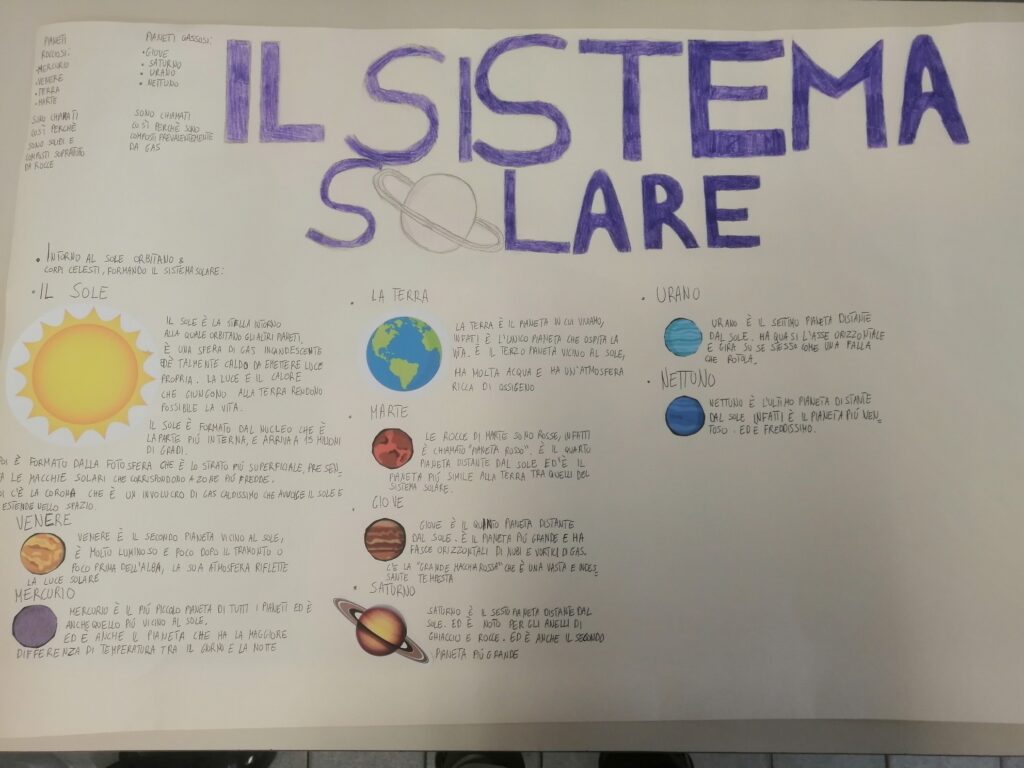 PIANETI
ROCCIOSI:
• MERCURIO
• VENERE
• TERRA
• MARTE
SONO CHIAMATI
COSÌ PERCHÈ
SONO SOLIDI E
COMPOSTI SOPRATTUTTO
DA ROCCE
PIANETI GASSOSI:
• GIOVE
• SATURNO
• URANO
• NETTUNO
SONO CHIAMATI
COSÌ PERCHÈ SONO
COMPOSTI PREVALENTEMENTE
DA GAS
IL SISTEMA
SOLARE
• INTORNO AL SOLE ORBITANO 8
CORPI CELESTI, FORMANDO IL SISTEMA SOLARE:
• IL SOLE
IL SOLE È LA STELLA INTORNO
ALLA QUALE ORBITANO GLI ALTRI PIANETI.
È UNA SFERA DI GAS INCANDESCENTE
ED È TALMENTE CALDO DA EMETTERE LUCE
PROPRIA. LA LUCE E IL CALORE
CHE GIUNGONO ALLA TERRA RENDONO
POSSIBILE LA VITA.
IL SOLE È FORMATO DAL NUCLEO CHE È
LA PARTE PIÚ INTERNA, E ARRIVA A 15 MILIONI
DI GRADI.
POI È FORMATO DALLA FOTOSFERA CHE È LO STRATO PIÚ SUPERFICIALE, PRESEN-
TA LE MACCHIE SOLARI CHE CORRISPONDONO A ZONE PIÚ FREDDE.
POI C'È LA CORONA CHE È UN INVOLUCRO DI GAS CALDISSIMO CHE AVVOLGE IL SOLE E
ESTENDE NELLO SPAZIO
VENERE
VENERE È IL SECONDO PIANETA VICINO AL SOLE,
È MOLTO LUMINOSO E POCO DOPO IL TRAMONTO O
POCO PRIMA DELL'ALBA, LA SUA ATMOSFERA RIFLETTE
LA LUCE SOLARE
MERCURIO
MERCURIO È IL PIÚ PICCOLO PIANETA DI TUTTI I PIANETI ED È
ANCHE QUELLO PIÚ VICINO AL SOLE.
ED È ANCHE IL PIANETA CHE HA LA MAGGIORE
DIFFERENZA DI TEMPERATURA TRA IL GIORNO E LA NOTTE
• LA TERRA
LA TERRA È IL PIANETA IN CUI VIVIAMO,
INFATTI È L'UNICO PIANETA CHE OSPITA LA
VITA. È IL TERZO PIANETA VICINO AL SOLE,
HA MOLTA ACQUA E HA UN'ATMOSFERA
RICCA DI OSSIGENO
• MARTE
LE ROCCE DI MARTE SONO ROSSE, INFATTI
È CHIAMATO "PIANETA ROSSO". È IL QUARTO
PIANETA DISTANTE DAL SOLE ED È IL
PIANETA PIÚ SIMILE ALLA TERRA TRA QUELLI DEL
SISTEMA SOLARE.
• GIOVE
GIOVE È IL QUINTO PIANETA DISTANTE
DAL SOLE. È IL PIANETA PIÚ GRANDE E HA
FASCE ORIZZONTALI DI NUBI E VORTICI DI GAS.
C'È LA "GRANDE MACCHIA ROSSA" CHE È UNA VASTA E INCES-
SANTE TEMPESTA
• SATURNO
SATURNO È IL SESTO PIANETA DISTANTE DAL
SOLE. ED È NOTO PER GLI ANELLI DI
GHIACCIO E ROCCE. ED È ANCHE IL SECONDO
PIANETA PIÚ GRANDE
• URANO
URANO È IL SETTIMO PIANETA DISTANTE
DAL SOLE. HA QUASI L'ASSE ORIZZONTALE
E GIRA SU SE STESSO COME UNA PALLA
CHE ROTOLA.
• NETTUNO
NETTUNO È L'ULTIMO PIANETA DISTANTE
DAL SOLE INFATTI È IL PIANETA PIÚ VEN-
TOSO. ED È FREDDISSIMO.